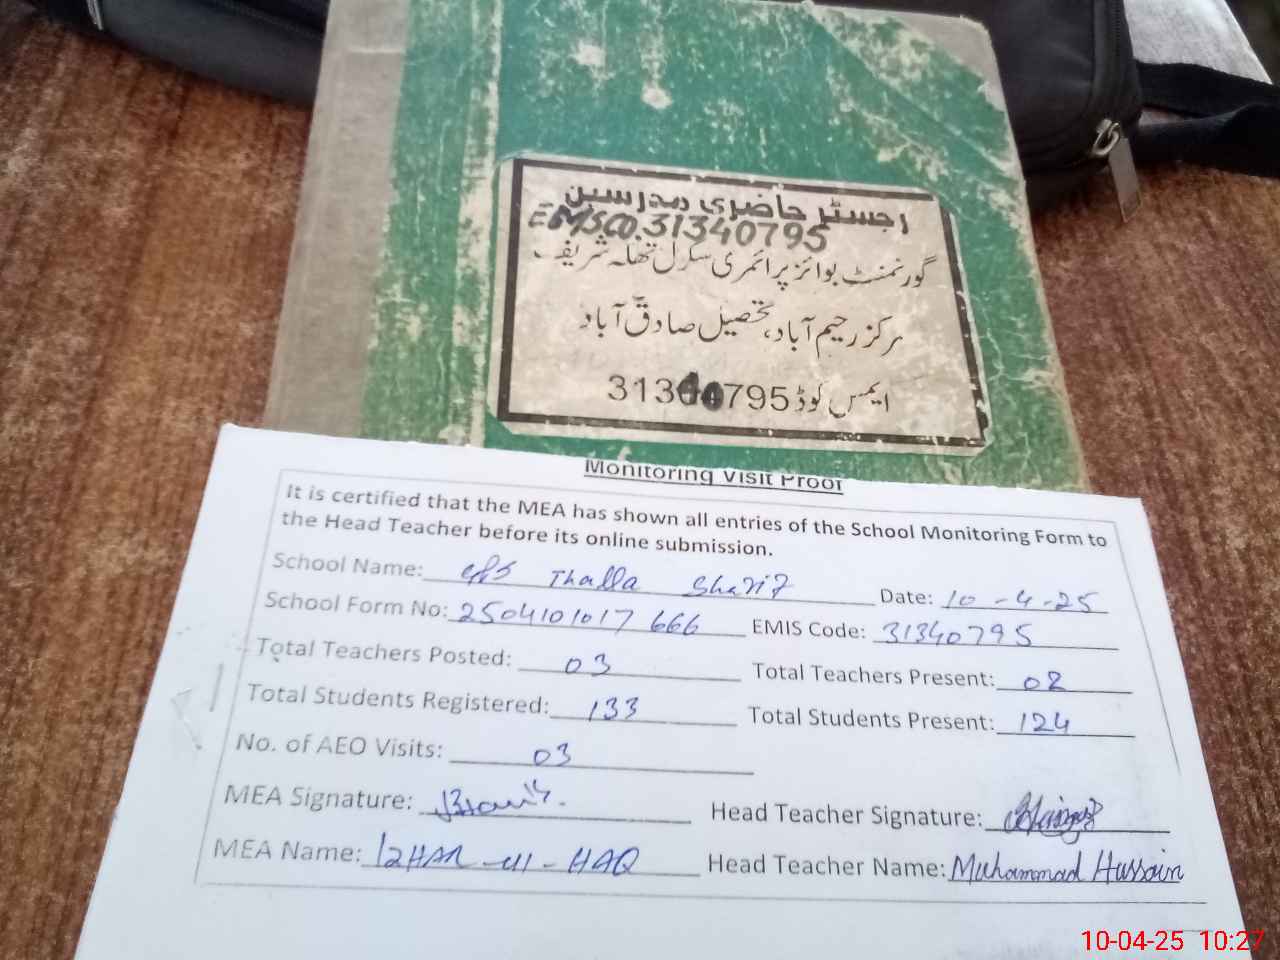 رجسٹر حاضری مدرسین
EMSCO.31340795
گورنمنٹ بوائز پرائمری سکول تھلہ شریف
مرکز رحیم آباد، تحصیل صادق آباد
ایمس کوڈ 31340795
Monitoring Visit Proof
It is certified that the MEA has shown all entries of the School Monitoring Form to
the Head Teacher before its online submission.
School Name: GPS Thalla Sharif Date: 10-4-25
School Form No: 2504101017 666 EMIS Code: 31340795
Total Teachers Posted: 03 Total Teachers Present: 02
Total Students Registered: 133 Total Students Present: 124
No. of AEO Visits: 03
MEA Signature: Head Teacher Signature:
MEA Name: IZHAR-UL-HAQ Head Teacher Name: Muhammad Hussain
10-04-25 10:27